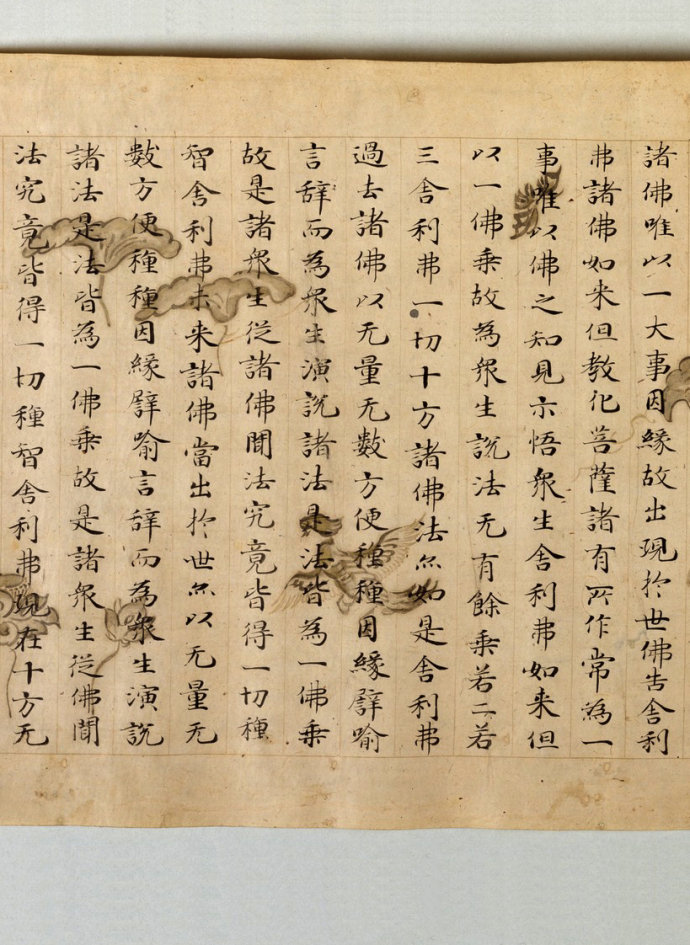 諸佛唯以一大事因緣故出現於世佛告舍利
弗諸佛如来但教化菩薩諸有所作常為一
事唯以佛之知見示悟衆生舍利弗如来但
以一佛乗故為衆生說法无有餘乗若二若
三舍利弗一切十方諸佛法亦如是舍利弗
過去諸佛以无量无數方便種種因緣譬喻
言辞而為衆生演說諸法是法皆為一佛乗
故是諸衆生従諸佛聞法究竟皆得一切種
智舍利弗未来諸佛當出於世亦以无量无
數方便種種因緣譬喻言辞而為衆生演說
諸法是法皆為一佛乗故是諸衆生従佛聞
法究竟皆得一切種智舍利弗現在十方无